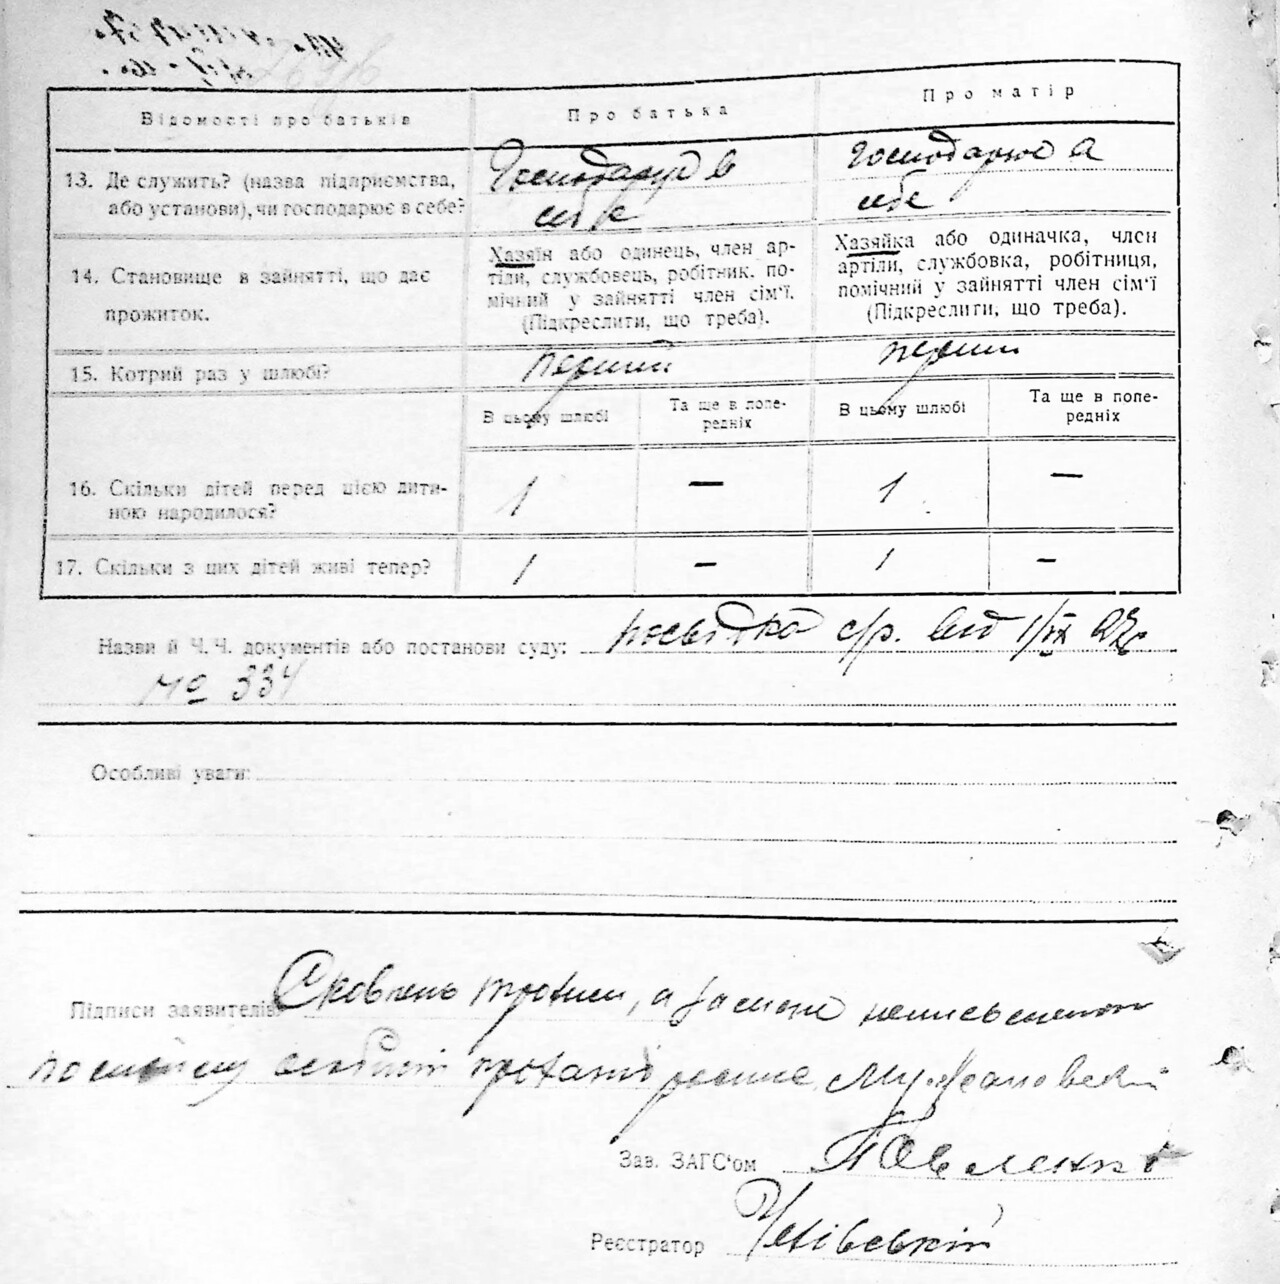 Відомості про батьків
Про батька
Про матір
13. Де служить? (назва підприємства,
або установи), чи господарює в себе?
Господарує в
себе
Господарює а
себе
14. Становище в зайнятті, що дає
прожиток.
Хазяїн або одинець, член ар-
тіли, службовець, робітник. по-
мічний у зайнятті член сім'ї.
(Підкреслити, що треба).
Хазяйка або одиначка, член
артіли, службовка, робітниця,
помічний у зайнятті член сім'ї
(Підкреслити, що треба).
15. Котрий раз у шлюбі?
перший
перший
В цьому шлюбі
Та ще в попе-
редніх
В цьому шлюбі
Та ще в попе-
редніх
16. Скільки дітей перед цією дити-
ною народилося?
1
—
1
—
17. Скільки з цих дітей живі тепер?
1
—
1
—
Назви й Ч. Ч. документів або постанови суду: посвідка с/р. від 1/IX
№ 334
Особливі уваги:
Підписи заявителів
особистій
Зав. ЗАГС'ом Павленко
Реєстратор